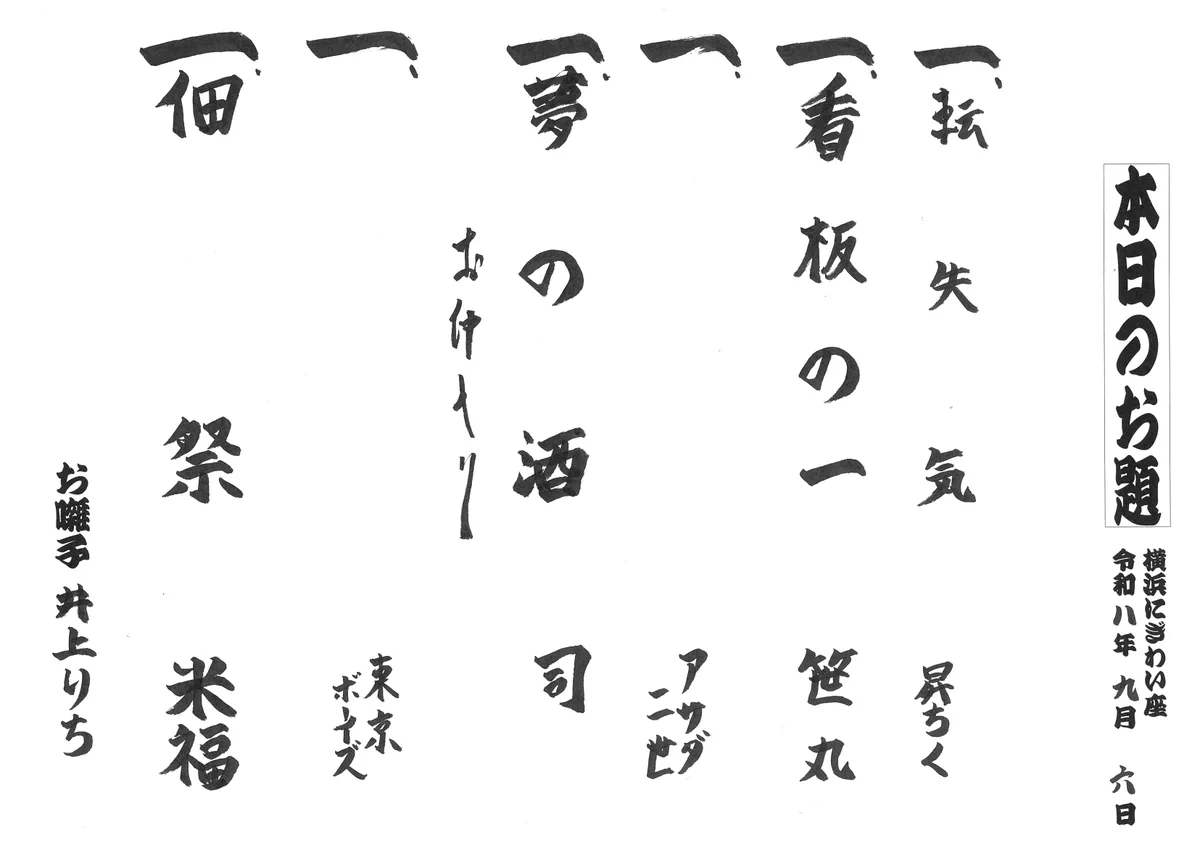 本日のお題
横浜にぎわい座
令和八年 九月 六日
一、転失気 昇ちく
一、看板の一 笹丸
一、 アサダ二世
一、夢の酒 司
お仲入り
一、 東京ボーイズ
一、佃祭 米福
お囃子 井上りち